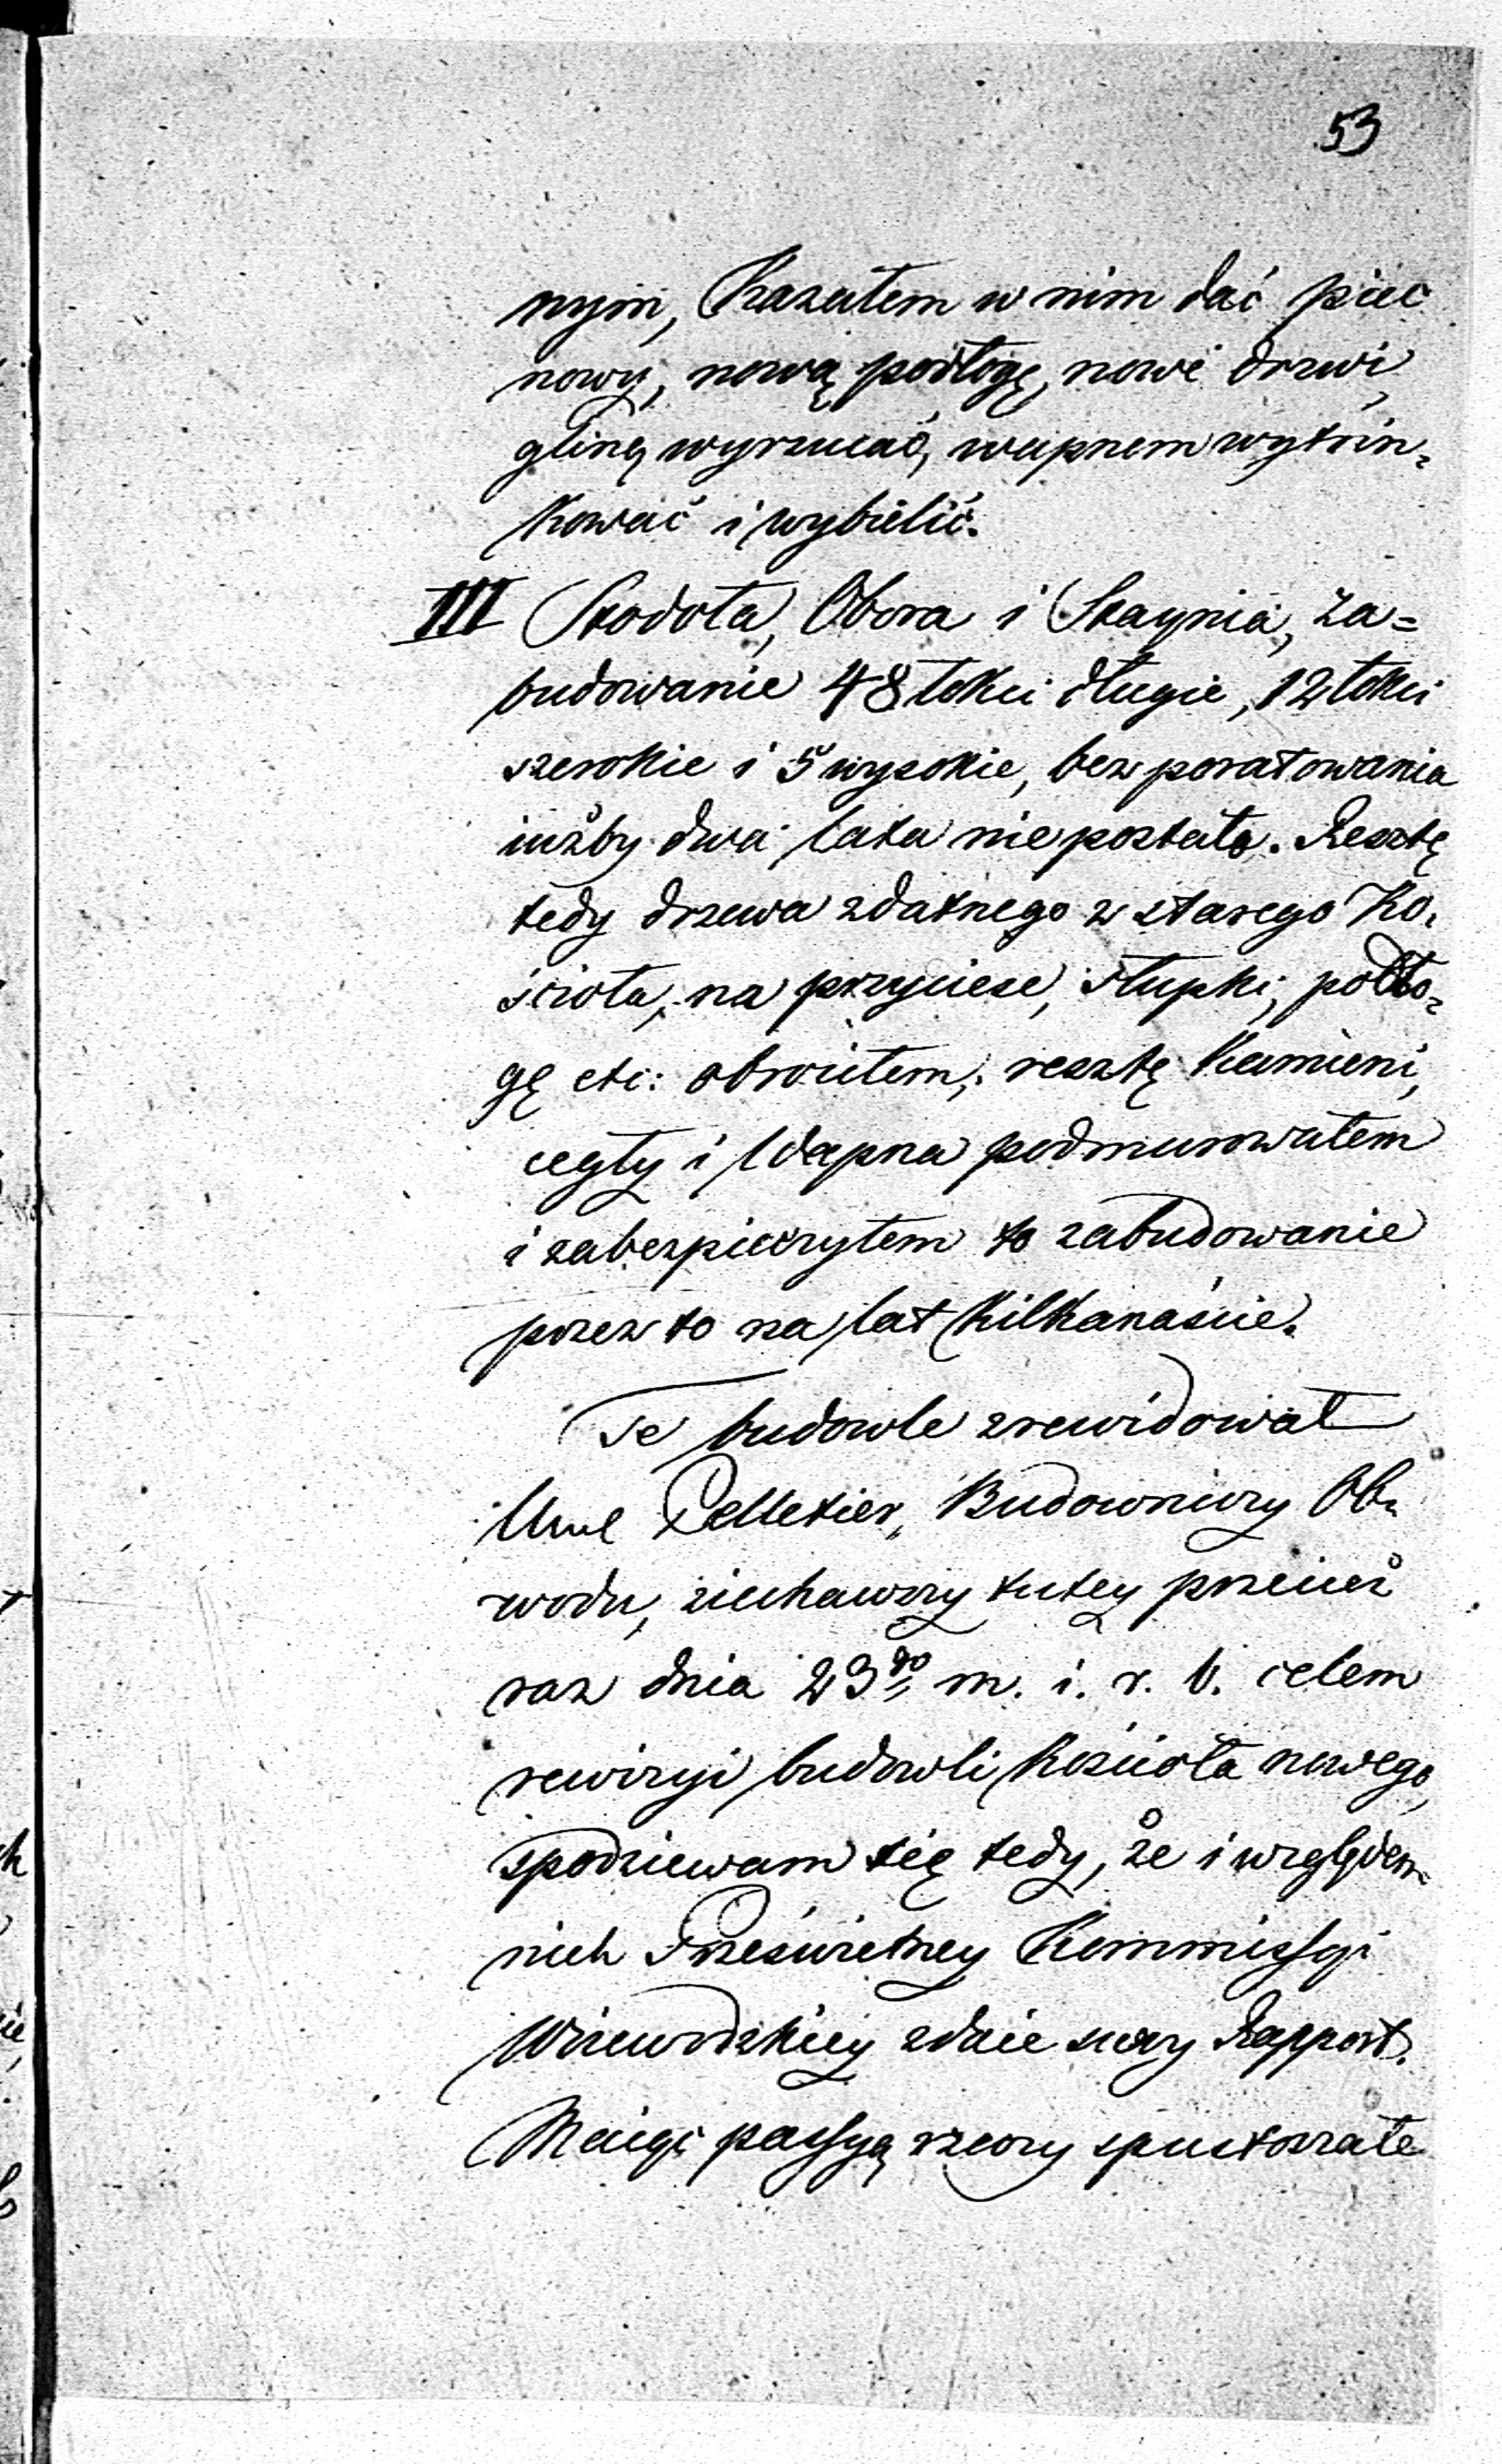 53
nym, Kazałem w nim dać piec
nowy, nową podłogę, nowe drzwi,
gliną wyrzucać, wapnem wytrin=
kować i wybielić.
III Stodoła, Obora i Staynia, za=
budowanie 48 łokci długie, 12 łokci
szerokie i 5 wysokie, bez poratowania
iużby dwa lata nie postało. Resztę
tedy drzewa zdatnego z starego Ko=
ścioła, na przyciese, słupki, podło=
gę etc: obróciłem, resztę Kamieni,
cegły i Wapna podmurowałem
i zabezpieczyłem to zabudowanie
przez to na lat Kilkanaście.
Te budowle zrewidował
Pelletier, Budowniczy Ob=
wodu, ziechawszy tutey przecież
raz dnia 23go m. i. r. b. celem
rewizyi budowli Kościoła nowego,
spodziewam się tedy, że i względem
nich Prześwietney Kommissyi
Woiewodzkiey zdaie swóy Rapport.
Maiąc passyą rzeczy spustoszałe